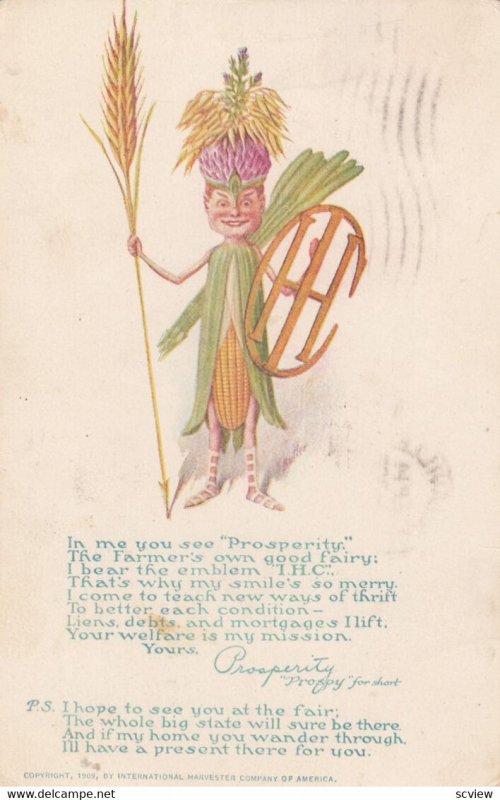 IHC
In me you see "Prosperity,"
The Farmer's own good fairy;
I bear the emblem "I.H.C.",
That's why my smile's so merry.
I come to teach new ways of thrift
To better each condition—
Liens, debts, and mortgages I lift,
Your welfare is my mission.
Yours,
Prosperity
"Prospy" for short
P.S. I hope to see you at the fair;
The whole big state will sure be there.
And if my home you wander through,
I'll have a present there for you.
COPYRIGHT, 1909, BY INTERNATIONAL HARVESTER COMPANY OF AMERICA.
Hipstamp.com/store/scview
scview